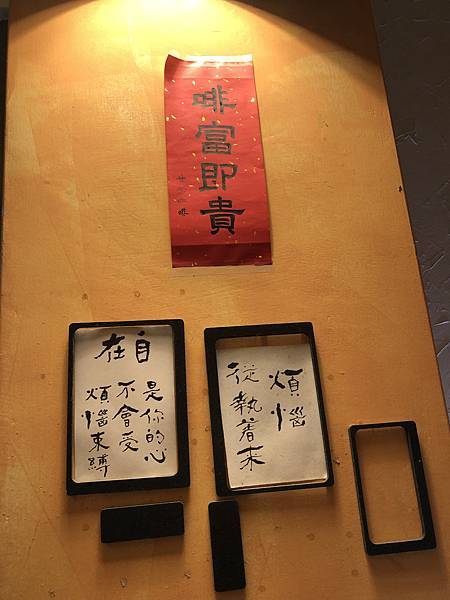 啡富即貴
自在
是你的心
不會受
煩惱束縛
煩惱
從執著來